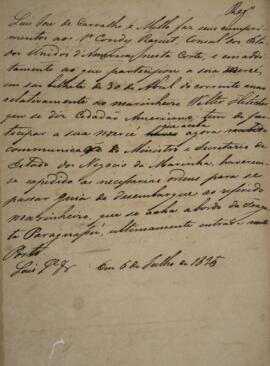 Luis Jose de Carvalho e Mello faz seus cumpri-
mentos ao Sr. Condy Raguet, Consul dos Esta
dos Unidos d'America nesta Corte, e em addi-
tamento ao que participou a sua Mercê,
em seu bilhete de 30 de Abril do corrente anno
relativamente ao marinheiro Walter
que se diz Cidadão Americano, tem de par-
ticipar a sua mercê agora
communica o Ministro e Secretario de
Estado dos Negocios da Marinha, haverem-
se expedido as necessarias ordens para se
passar guia de desembarque ao referido
marinheiro, que se acha abordo da Fraga-
ta Paraguassú, ultimamente entrada neste
Porto.
Em 6 de Julho de 1825